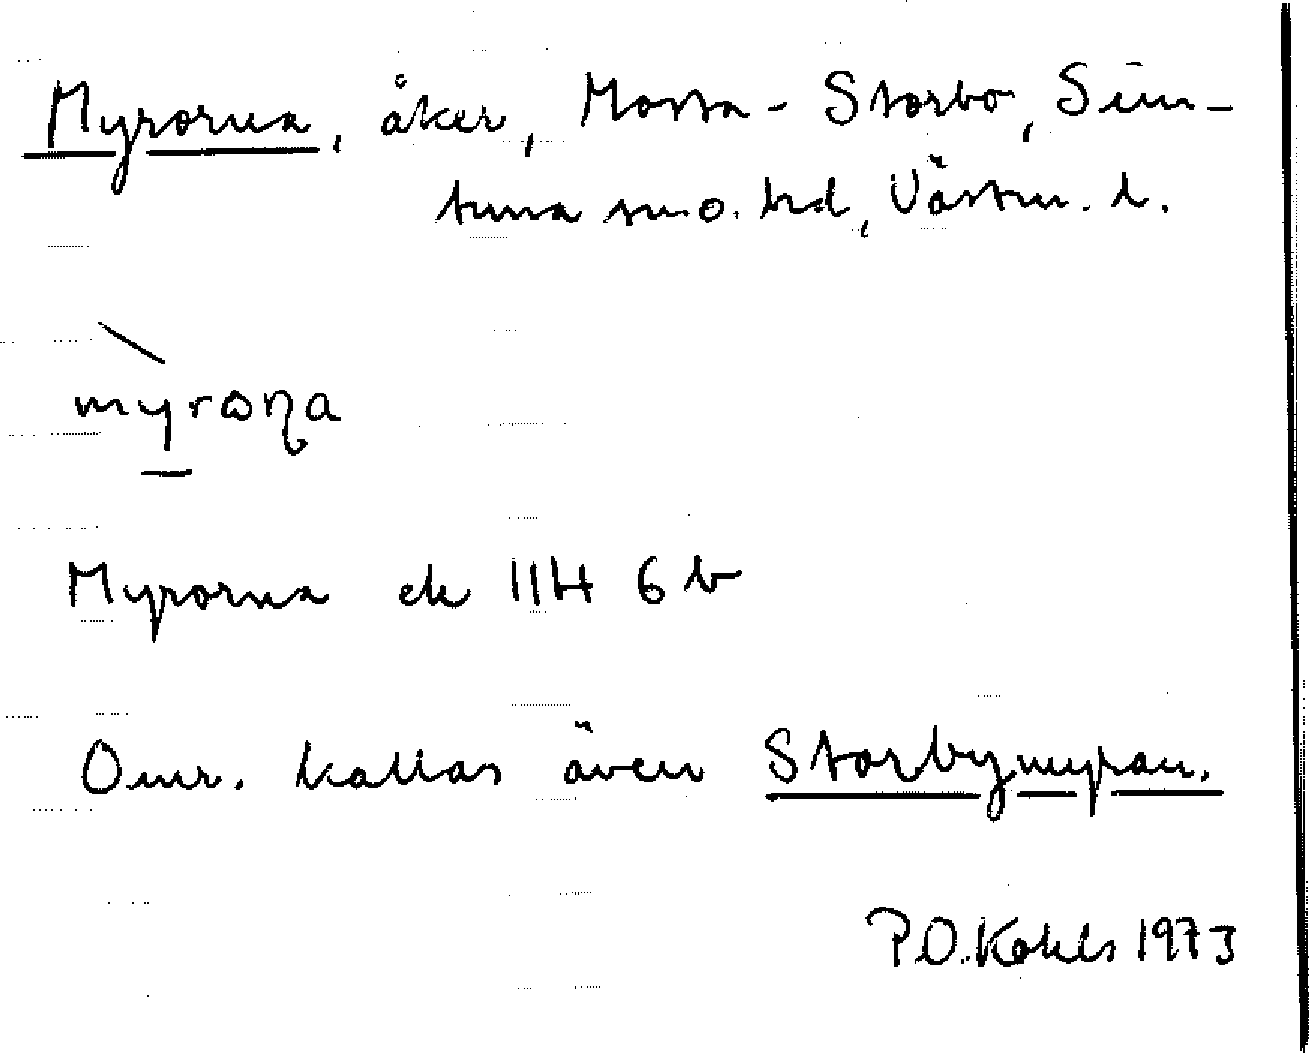 Myrorna, åker, Mossa-Storbo, Sim-
tuna sn o. hd, Västm. l.
myrωɳa
Myrorna ek 11H 6 b
Omr. kallas även Storbymyran.
P.O. Kohls 1973